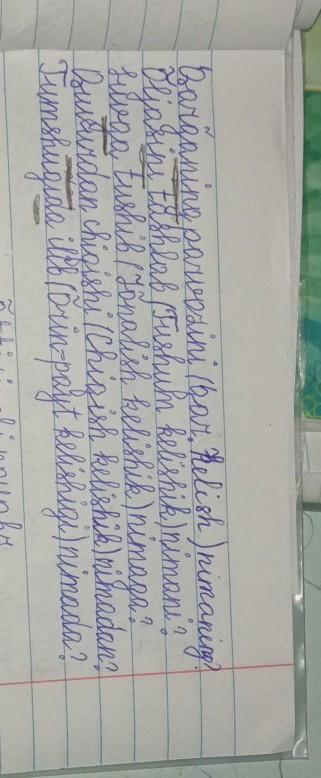 Qarğaning parvozini (Qar. Kelish) nimaning?
Oljasini tashlab (Tushum kelishik) nimani?
Suvga tushib (Jonalish kelishik) nimaga?
Qudan chiqishi (Chiqish kelishik) nimadan?
Tumshugida ilib (Õrin-payt kelishigi) nimada?